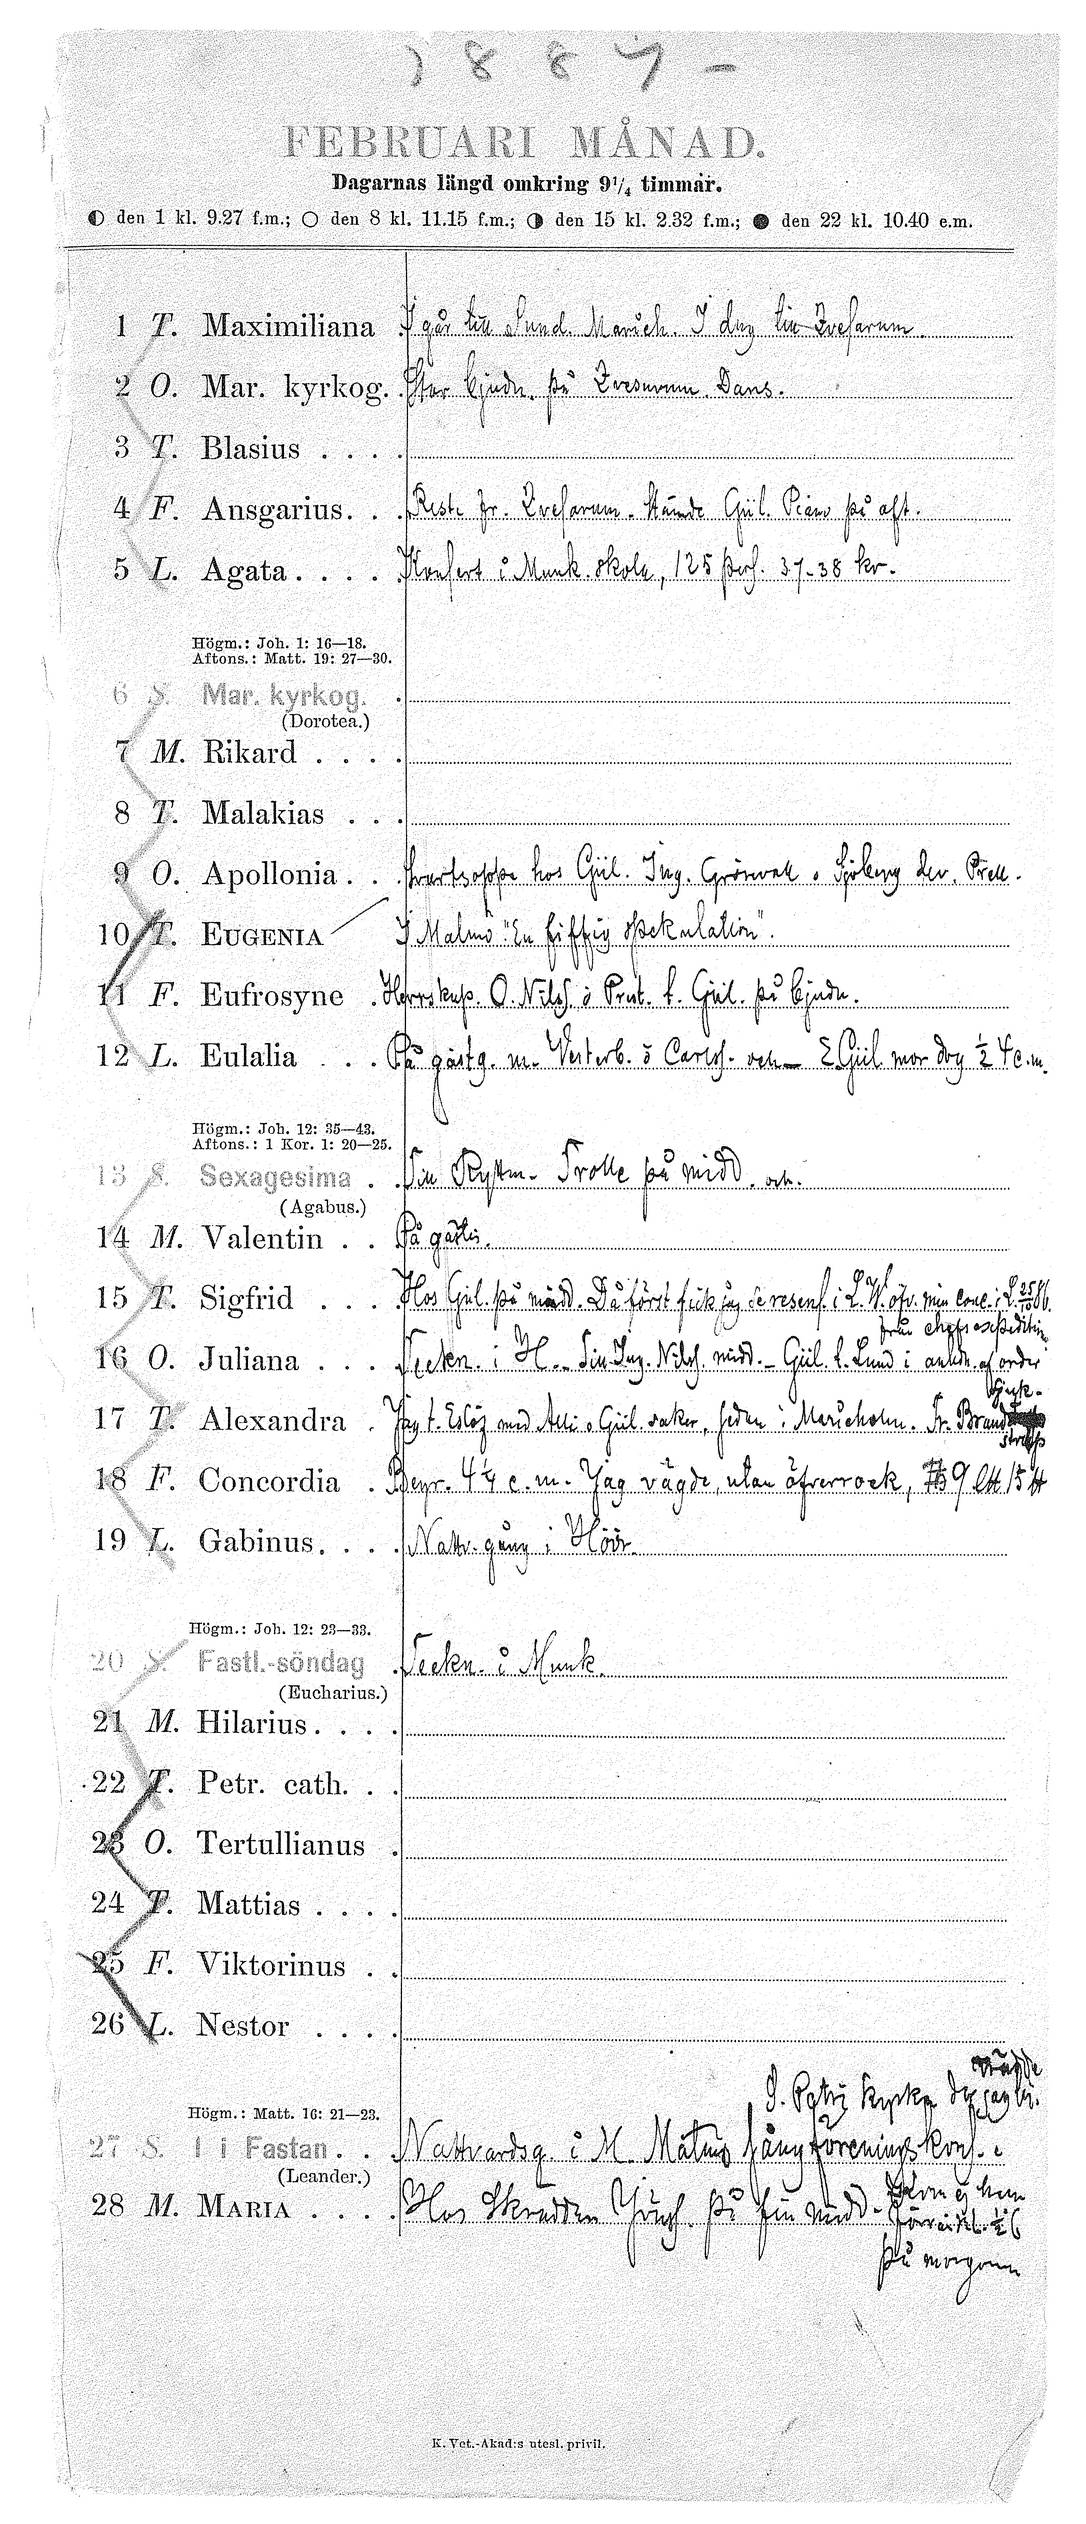 1887 -
FEBRUARI MÅNAD.
Dagarnas längd omkring 9¼ timmar.
◐ den 1 kl. 9.27 f.m.; ○ den 8 kl. 11.15 f.m.; ◑ den 15 kl. 2.32 f.m.; ● den 22 kl. 10.40 e.m.
1 T. Maximiliana I går till Lund. I dag till
2 O. Mar. kyrkog. . Stor bjudn. på Dans.
3 T. Blasius . . . .
4 F. Ansgarius. . . Reste fr. Stämde Gül. Piano på aft.
5 L. Agata . . . . . Konsert i Munk. skola, 125 pers. 37-38 kr.
Högm.: Joh. 1: 16—18.
Aftons.: Matt. 19: 27—30.
6 S. Mar. kyrkog. .
(Dorotea.)
7 M. Rikard . . . .
8 T. Malakias . . .
9 O. Apollonia . . . Svartsoppa hos Gül. Ing. o Sjöberg der.
10 T. EUGENIA I Malmö "En fiffig spekulation".
11 F. Eufrosyne . Herrskap. O. Nilss. o Prest. t. Gül. på bjudn.
12 L. Eulalia . . . På gästg. m. Vesterb. o Carlss. och Gül. mor dog ½ 4 e.m.
Högm.: Joh. 12: 35—43.
Aftons.: 1 Kor. 1: 20—25.
13 S. Sexagesima . . Till Ryttm. Trolle på midd.
(Agabus.)
14 M. Valentin . . På gästis.
15 T. Sigfrid . . . . Hos Gül. på midd. Då först fick jag se resens. i L.W. öfv. min conc. i L. 25/10 86.
från chefsexpedition
16 O. Juliana . . . Teckn. i H. Till Ing. Nilss. midd. - Gül. t. Lund i anledn. af order
17 T. Alexandra . Jag t. Eslöf med Gül. saker, sedan i Marieholm. Fr. Brand
18 F. Concordia . Begr. 4¼ e.m. Jag vägde, utan öfverrock, 9 15
19 L. Gabinus. . . . Nattv. gång i Höör.
Högm.: Joh. 12: 23—33.
20 S. Fastl.-söndag . Teckn. i Munk.
(Eucharius.)
21 M. Hilarius. . . .
22 T. Petr. cath. . .
23 O. Tertullianus .
24 T. Mattias . . . .
25 F. Viktorinus . .
26 L. Nestor . . . .
S. Petri kyrka der jag
Högm.: Matt. 16: 21—23.
27 S. 1 i Fastan . . . Nattvardsg. i M. Malmö sångförenings kons. i
(Leander.)
28 M. MARIA . . . . Hos Skrädden på fin midd. ej hem
förr än kl. ½ 6
på morgonen
K. Vet.-Akad:s utesl. privil.